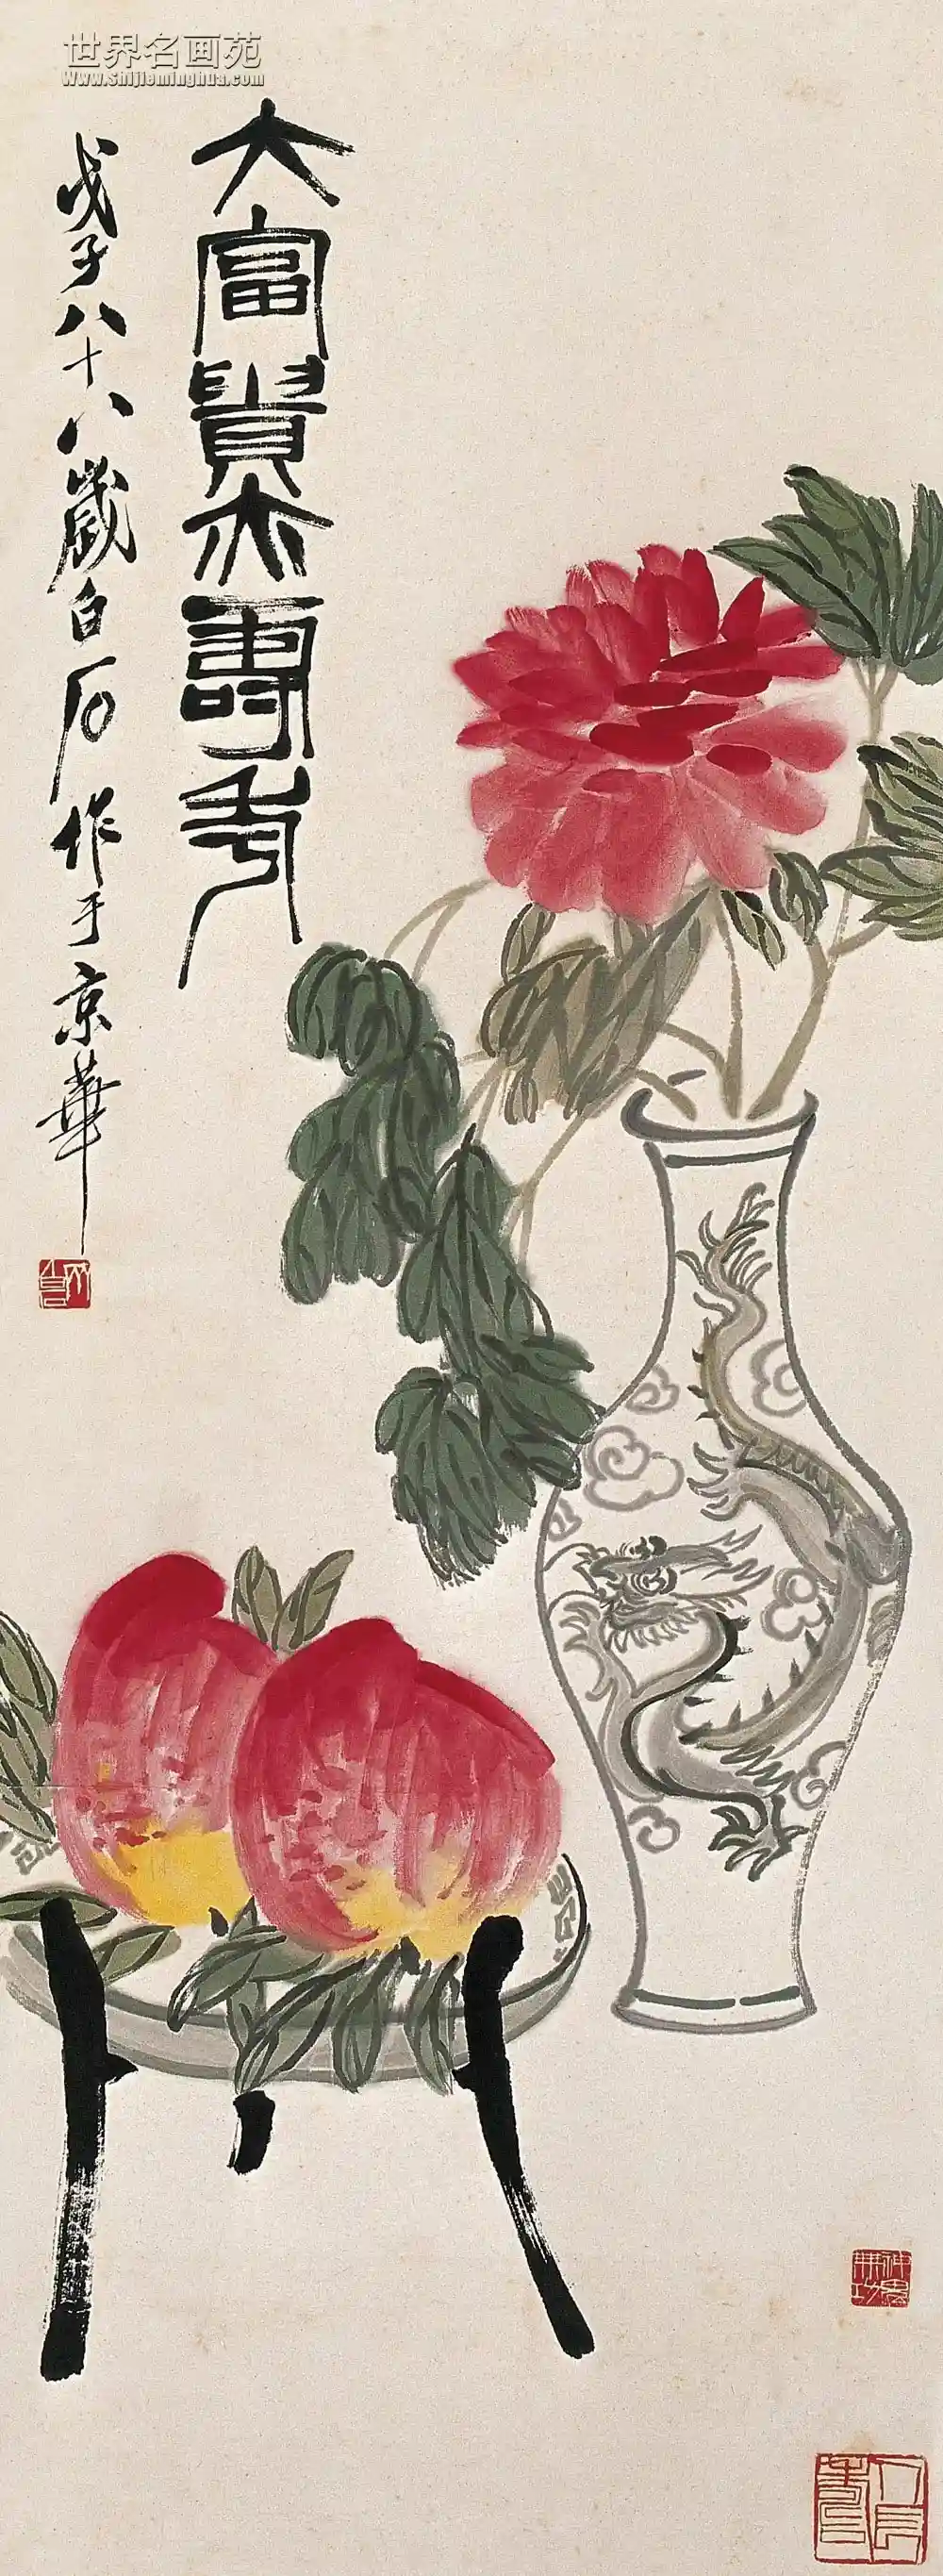 世界名画苑
Www.shijieminghua.com
大富貴亦壽考
戊子八十八歲白石作于京華